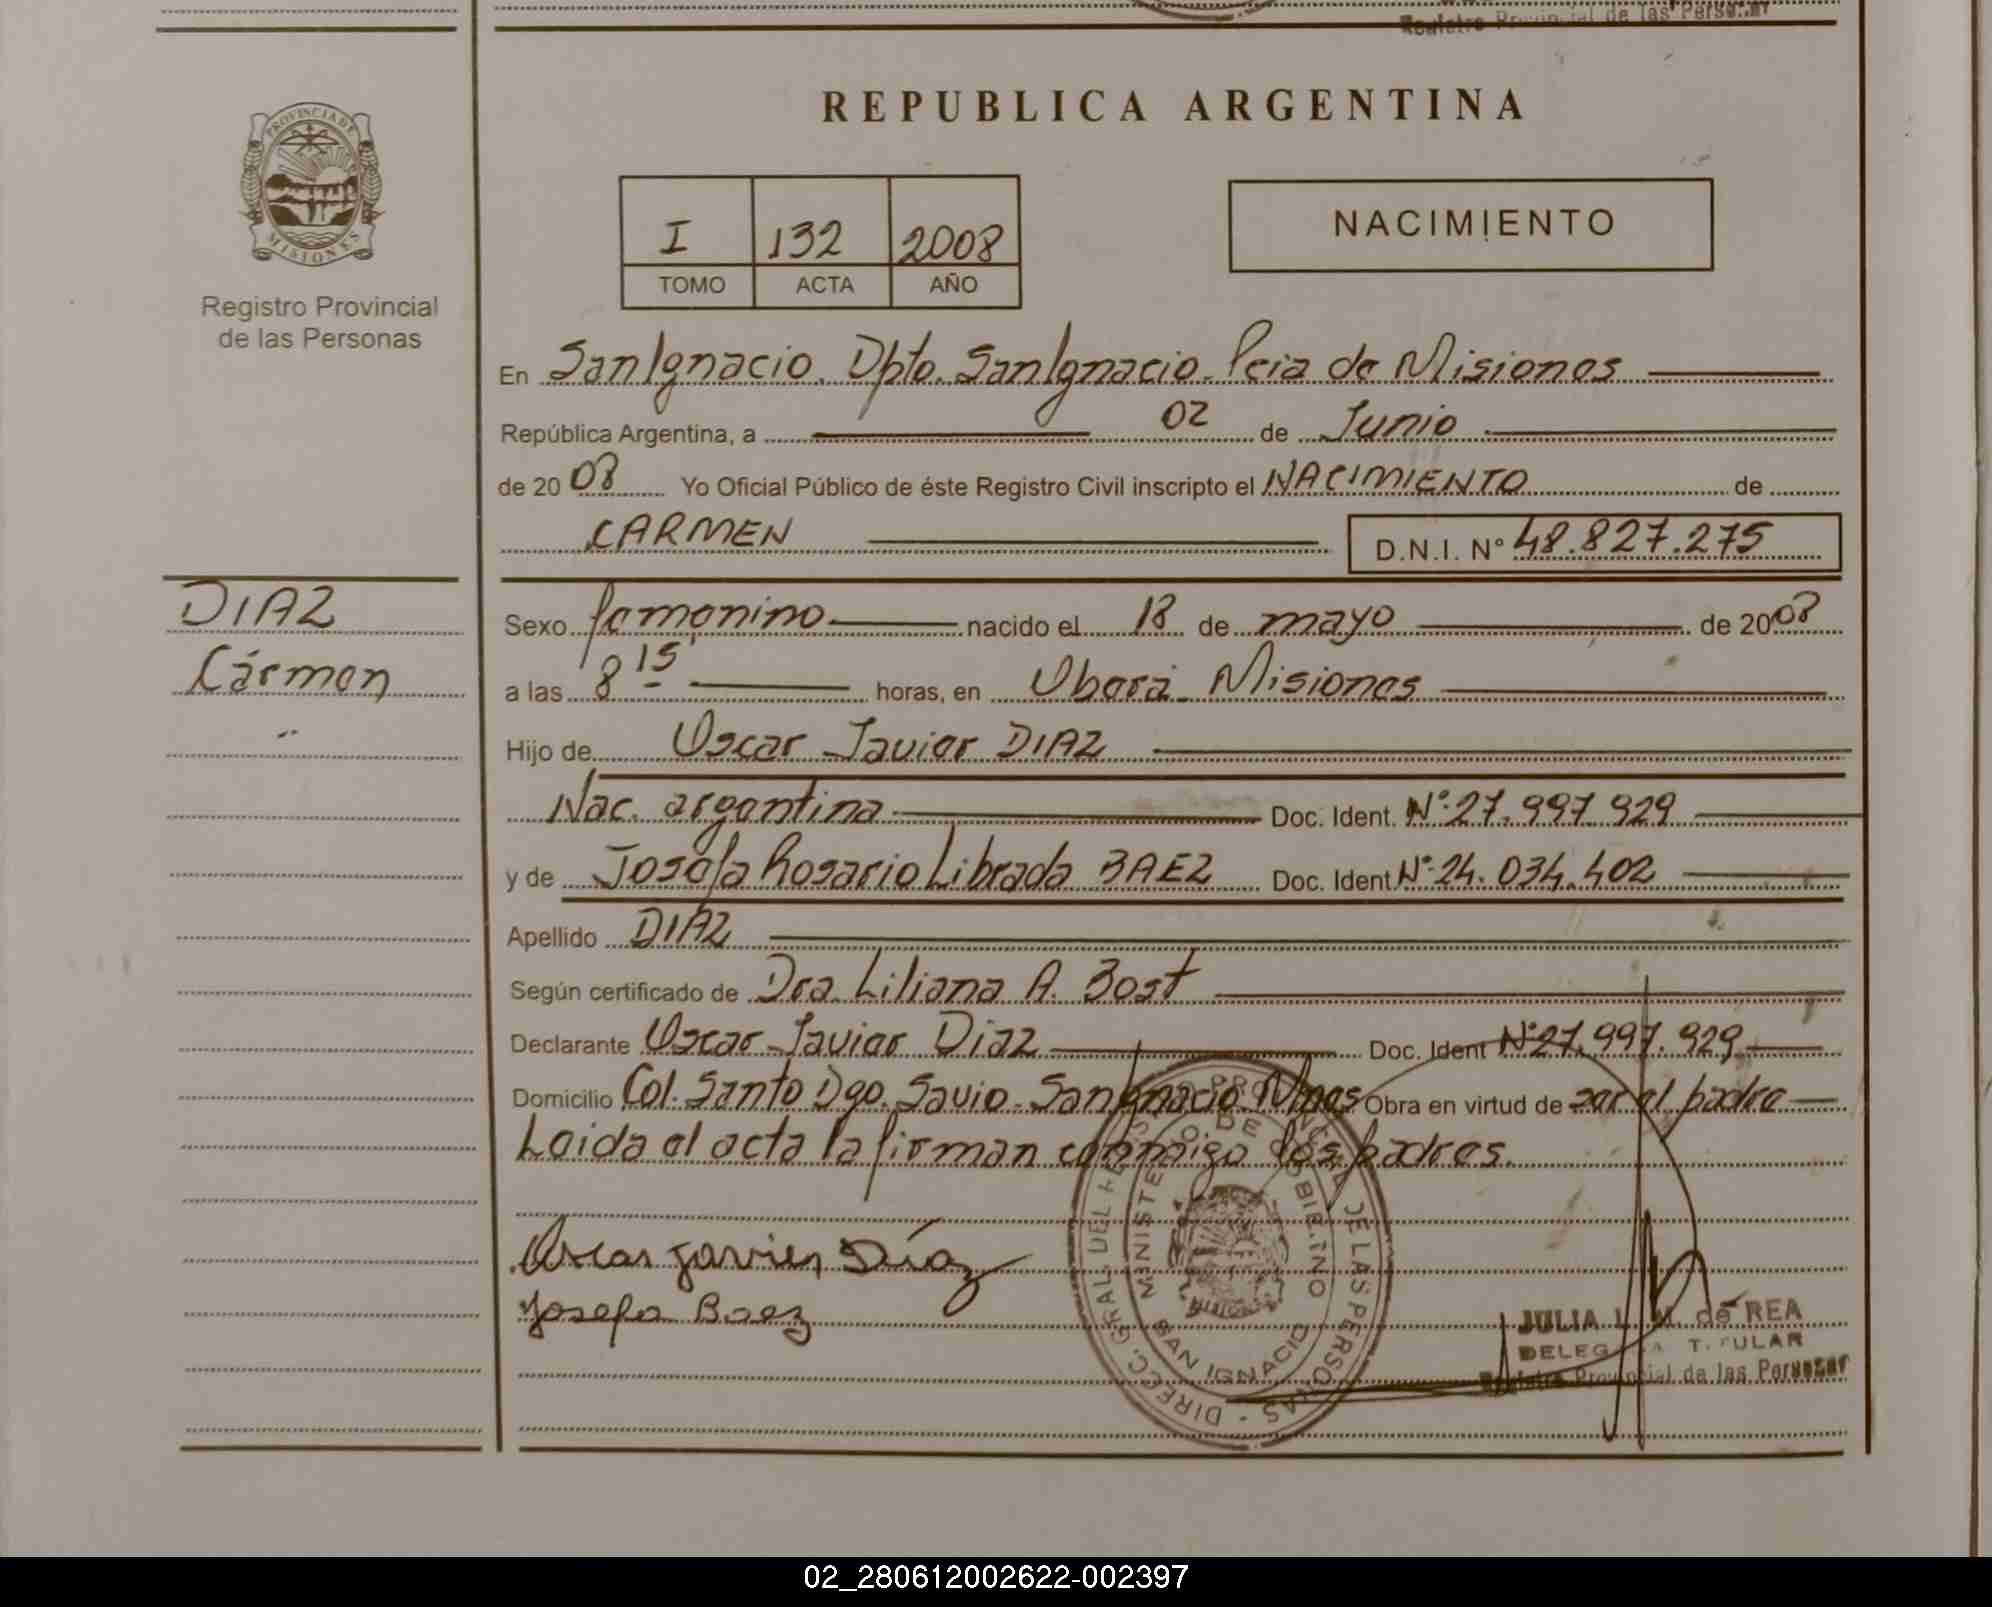 Registro Provincial de las Personas
REPUBLICA ARGENTINA
PROVINCIA DE
MISIONES
Registro Provincial
de las Personas
I 132 2008
TOMO ACTA AÑO
NACIMIENTO
En San Ignacio. Dpto. San Ignacio. Pcia de Misiones
República Argentina, a 02 de Junio
de 2008 Yo Oficial Público de éste Registro Civil inscripto el NACIMIENTO de
CARMEN D.N.I. N° 48.827.275
DIAZ
Cármen
Sexo femenino nacido el 18 de mayo de 2008
a las 8 15' horas, en Oberá Misiones
Hijo de Oscar Javier DIAZ
Nac. argentina Doc. Ident. N°: 27.997.929
y de Josefa Rosario Librada BAEZ Doc. Ident N°. 24.034.402
Apellido DIAZ
Según certificado de Dra. Liliana A. Bost
Declarante Oscar Javier Diaz Doc. Ident N° 27.997.929
Domicilio Col. Santo Dgo. Savio. San Ignacio. Mnes Obra en virtud de ser el padre
Leida el acta la firman conmigo los padres.
Oscar Javier Díaz
Josefa Baez
DIREC. GRAL. DEL REGISTRO PROVINCIAL DE LAS PERSONAS
MINISTERIO DE GOBIERNO
MISIONES
SAN IGNACIO
JULIA de REA
DELEGADA TITULAR
Registro Provincial de las Personas
02_280612002622-002397